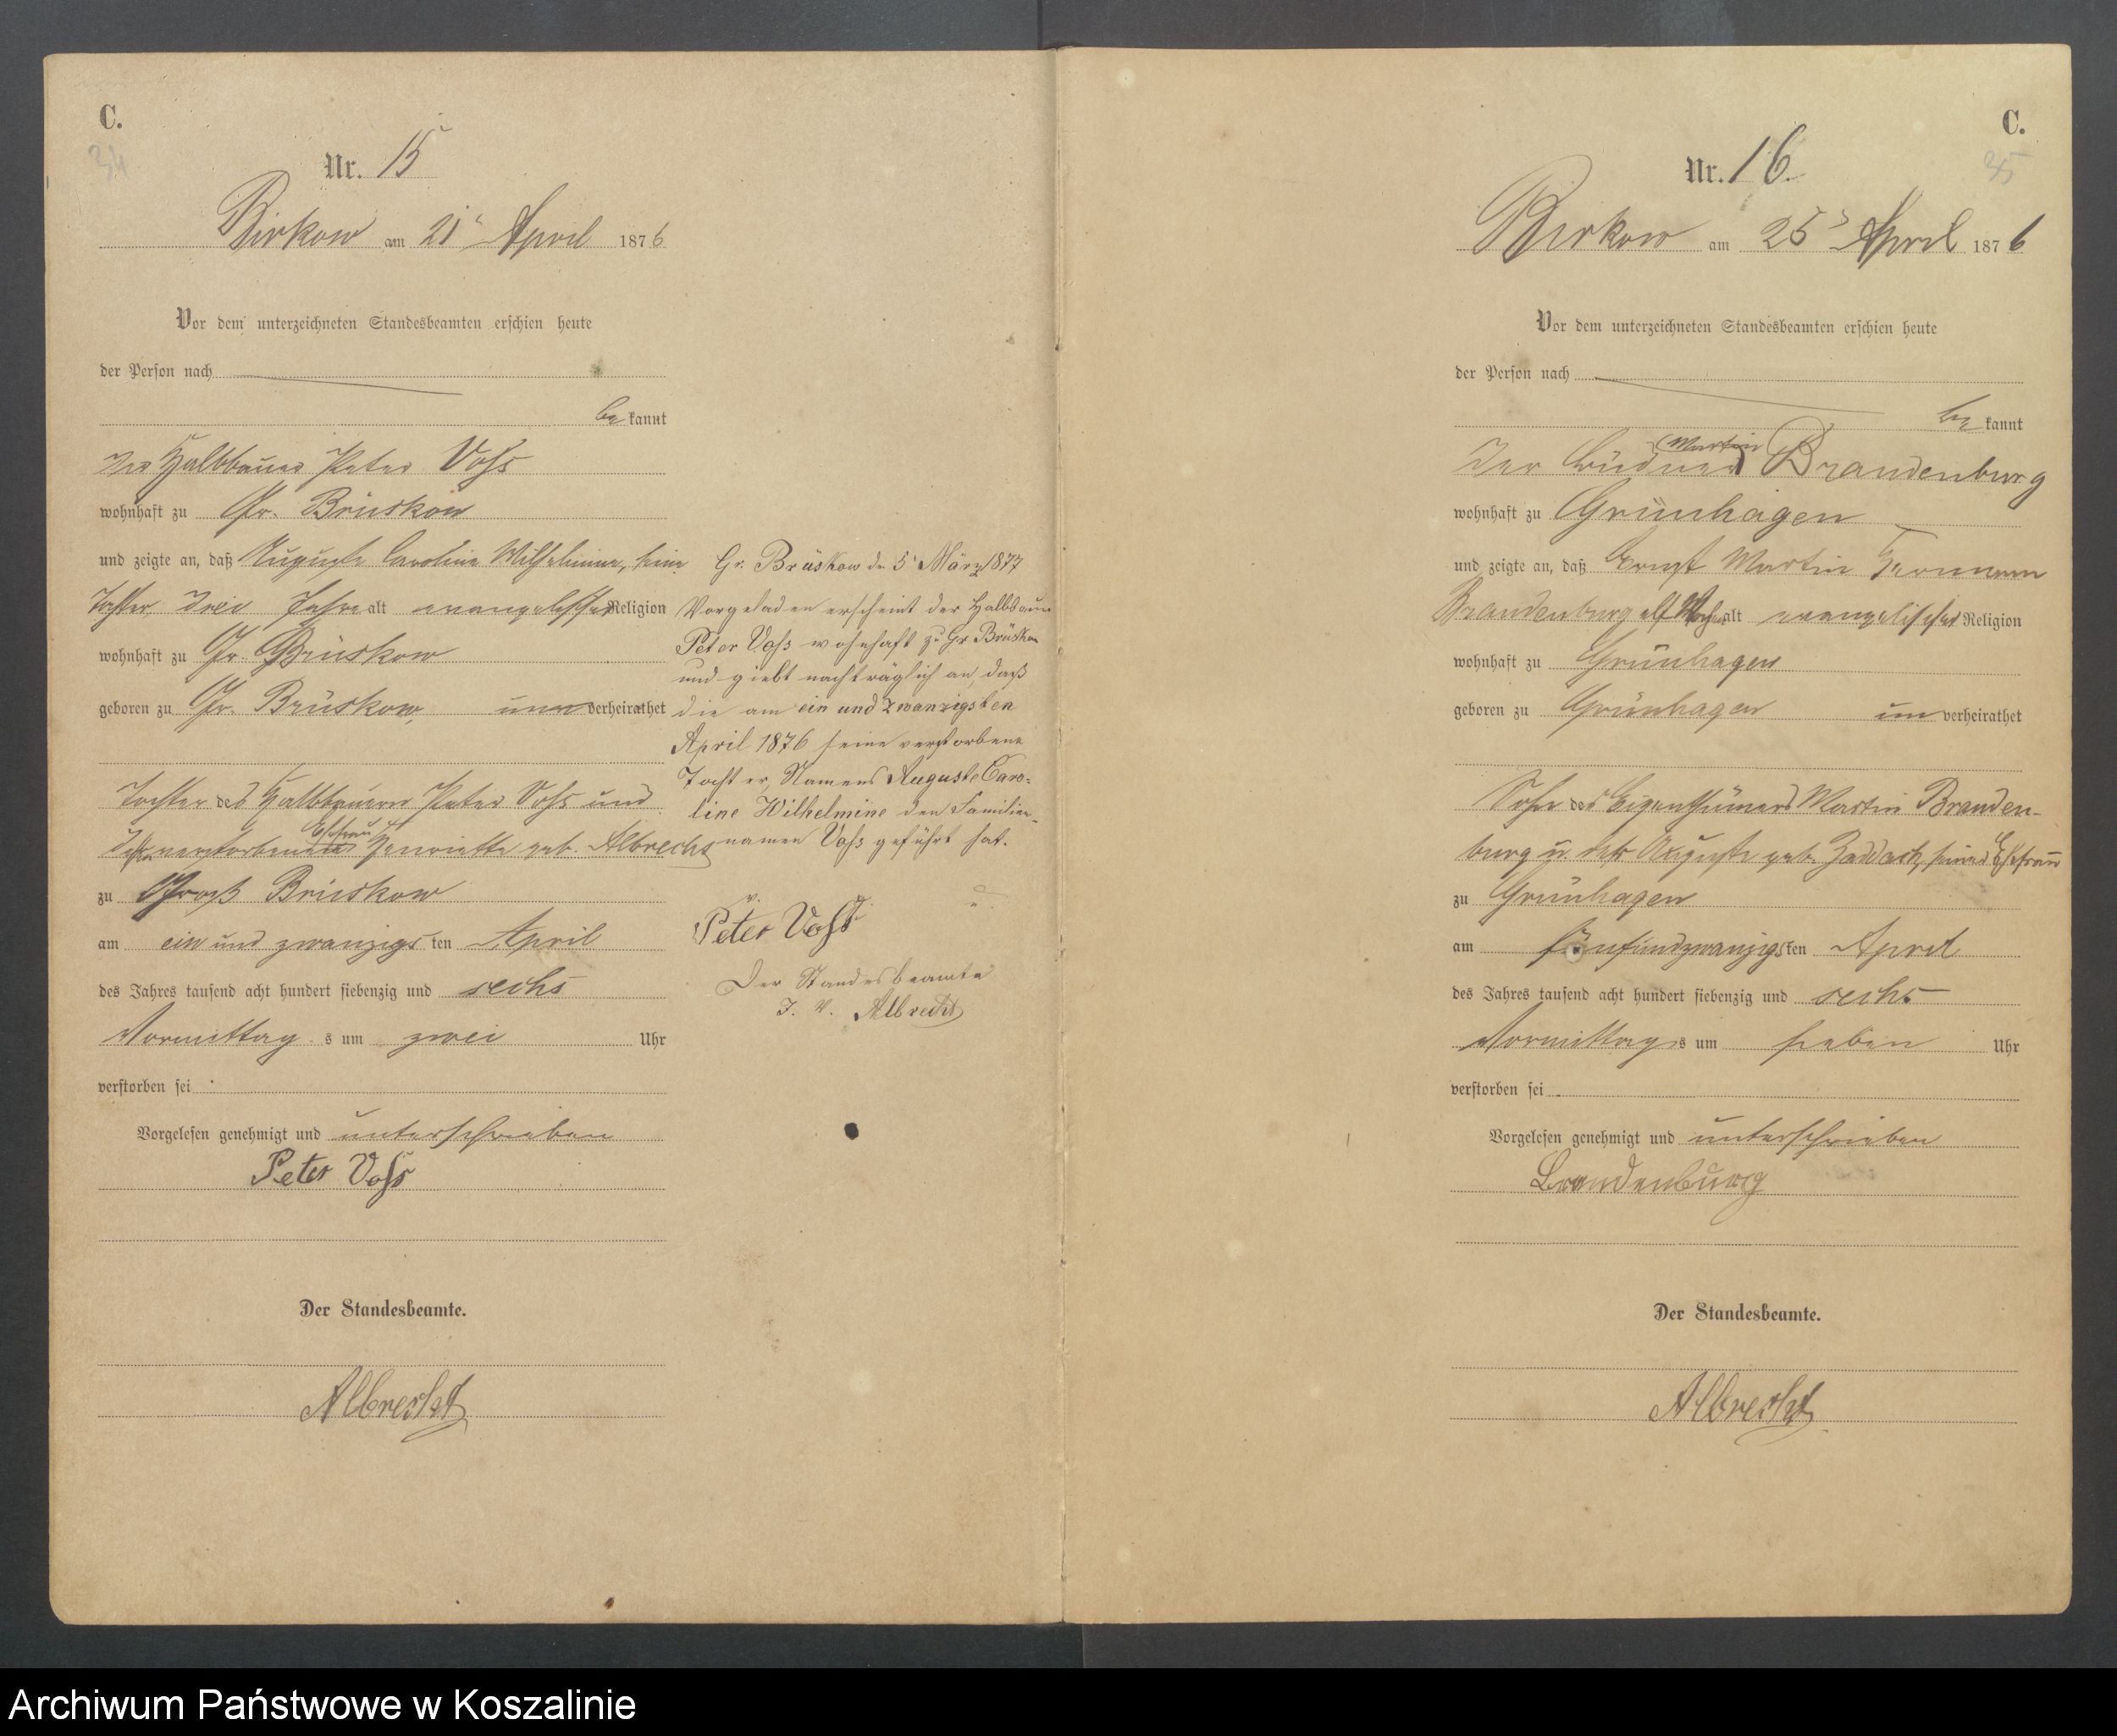 C.
34
Nr. 15
Birkow am 21t April 1876
Vor dem unterzeichneten Standesbeamten erschien heute
der Person nach
be kannt
der Halbbauer Peter Voss
wohnhaft zu Gr. Brüskow
und zeigte an, daß Auguste Caroline Wilhelmine, seine
Tochter, drei Jahre alt evangelischer Religion
wohnhaft zu Gr. Brüskow
geboren zu Gr. Brüskow, un verheirathet
Tochter des Halbbauern Peter Voss und
Ehefrau
verstorbenen Henriette geb. Albrecht
zu Groß Brüskow
am ein und zwanzigs ten April
des Jahres tausend acht hundert siebenzig und sechs
Vormittag s um zwei Uhr
verstorben sei
Vorgelesen genehmigt und unterschrieben
Peter Voss
Der Standesbeamte.
Albrecht
Gr. Brüskow d. 5t März 1877
Vorgeladen erscheint der Halbbauer
Peter Voss wohnhaft zu Gr Brüskow
und giebt nachträglich an, daß
die am ein und zwanzigsten
April 1876 seine verstorbene
Tochter, Namens Auguste Caro-
line Wilhelmine den Familien-
namen Voss geführt hat.
v. g. u.
Peter Voss
Der Standesbeamte
J. V. Albrecht
C.
35
Nr. 16.
Birkow am 25t April 1876
Vor dem unterzeichneten Standesbeamten erschien heute
der Person nach
be kannt
Martin
Der Büdner Brandenburg
wohnhaft zu Grünhagen
und zeigte an, daß Ernst Martin Hermann
Brandenburg elf Wochen alt evangelischer Religion
wohnhaft zu Grünhagen
geboren zu Grünhagen un verheirathet
Sohn des Eigenthümers Martin Branden-
burg u. der Auguste geb. Zaddach, seiner Ehefrau
zu Grünhagen
am fünfundzwanzigsten April
des Jahres tausend acht hundert siebenzig und sechs
Vormittag s um sieben Uhr
verstorben sei
Vorgelesen genehmigt und unterschrieben
Brandenburg
Der Standesbeamte.
Albrecht
Archiwum Państwowe w Koszalinie